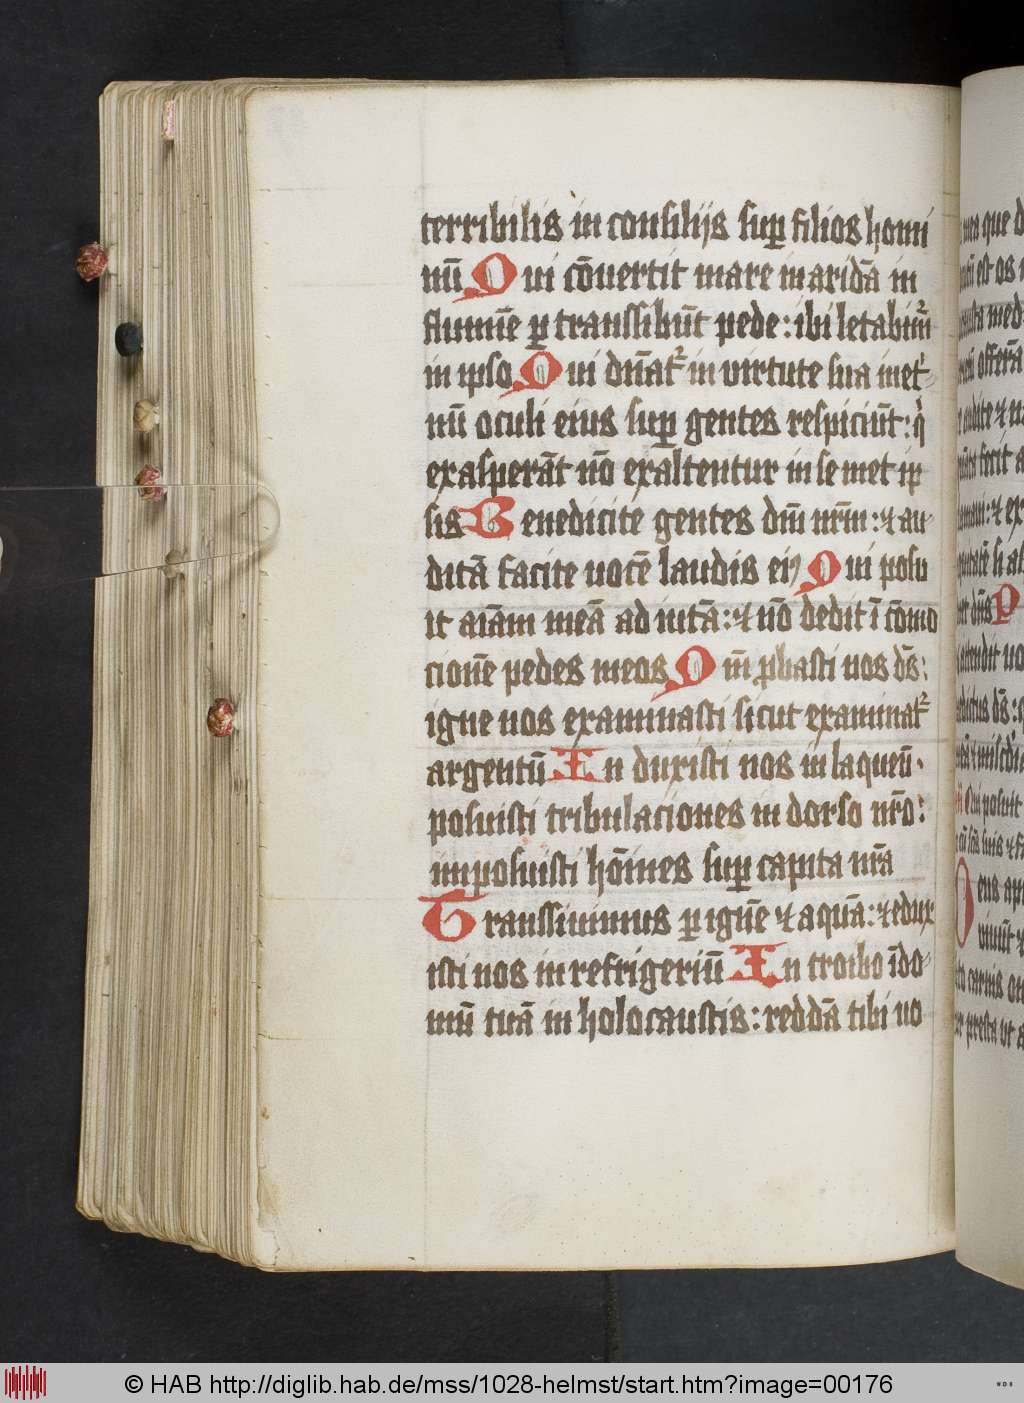 terribilis in consilijs sup filios homi
nū Qui cōvertit mare in aridā in
flumīe p transsibūt pede: ibi letabim̄
in ipso Qui dn̄at᷑ in virtute sua inet᷑
nū oculi eius sup gentes respiciūt: q̇
exasperāt nō exaltentur in se met ip
sis Benedicite gentes dm̄ nr̄m: ⁊ au
ditā facite uocē laudis eiꝰ Qui posu
it aīam meā ad uitā: ⁊ nō dedit ī cōmo
cionē pedes meos Qm̄ ꝓbasti nos ds̄:
igne nos examinasti sicut examinat᷑
argentū In duxisti nos in laqueū.
posuisti tribulaciones in dorso nr̄o:
imposuisti hōines sup capita nr̄a
Transsivimus p ignē ⁊ aquā: ⁊ edux
isti nos in refrigeriū In troibo ī do
mū tuā in holocaustis: reddā tibi uo
mea que
est os
med
offerā
ds̄
© HAB http://diglib.hab.de/mss/1028-helmst/start.htm?image=00176